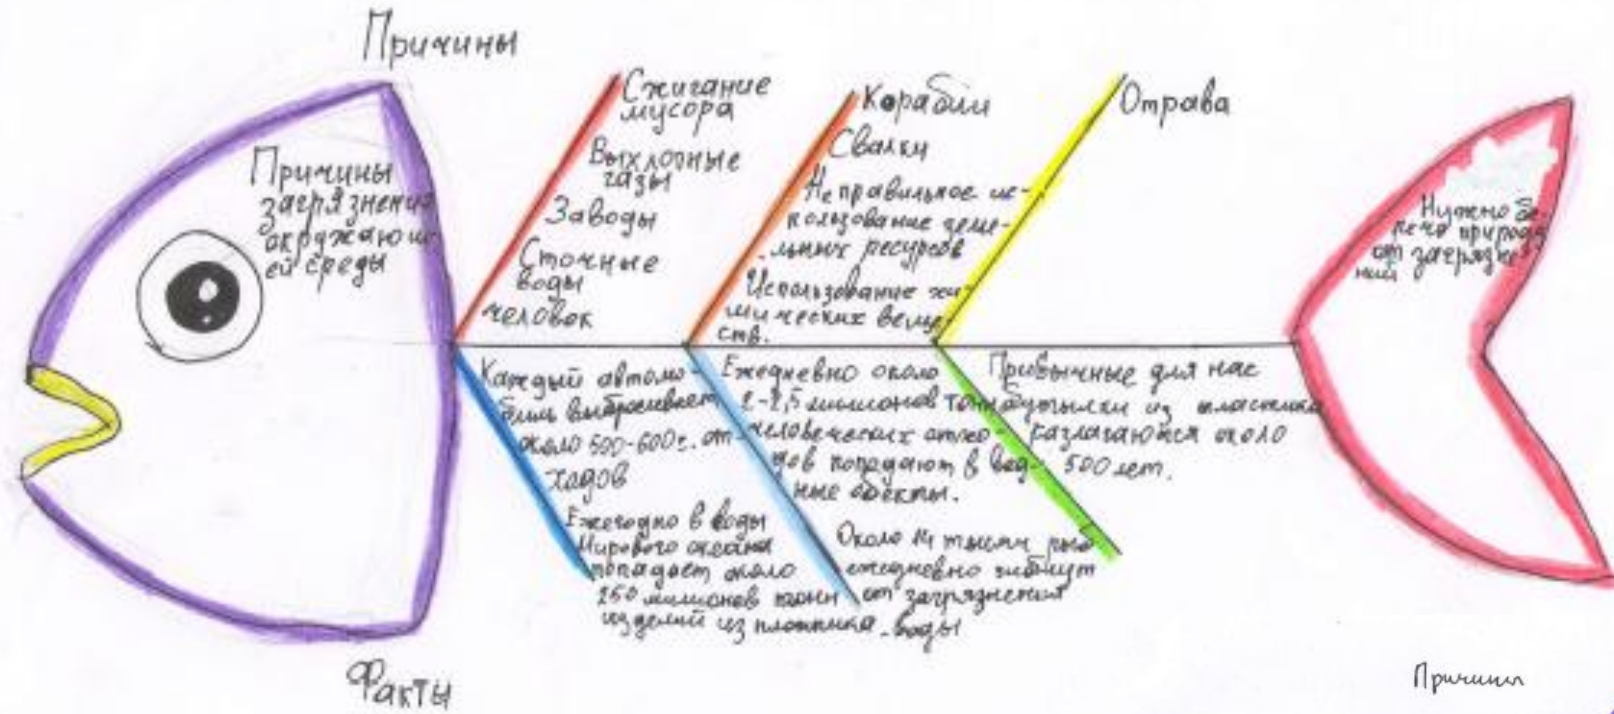 Причины
Причины
загрязнения
окружающ-
ей среды
Сжигание
мусора
Выхлопные
газы
Заводы
Сточные
воды
человок
Корабли
Свалки
Не правильное ис-
кользование земе-
льных ресурсов
Использование хи-
мических веще-
ств.
Отрава
Нужно бе-
речь природу
от загрязне-
ний
Каждый автомо-
биль выбрасывает
около 500-600г. от-
ходов
Ежегодно в воды
Мирового океана
попадает около
250 милионов тонн
изделий из пластика
Ежедневно около
2-2,5 милионов тонн
человеческих отхо-
дов попадают в вод-
ные обекты.
Около 14 тысяч рыб
ежедневно гибнут
от загрязнения
воды
Привычные для нас
бутылки из пластика
разлагаются около
500 лет.
Факты
Причины